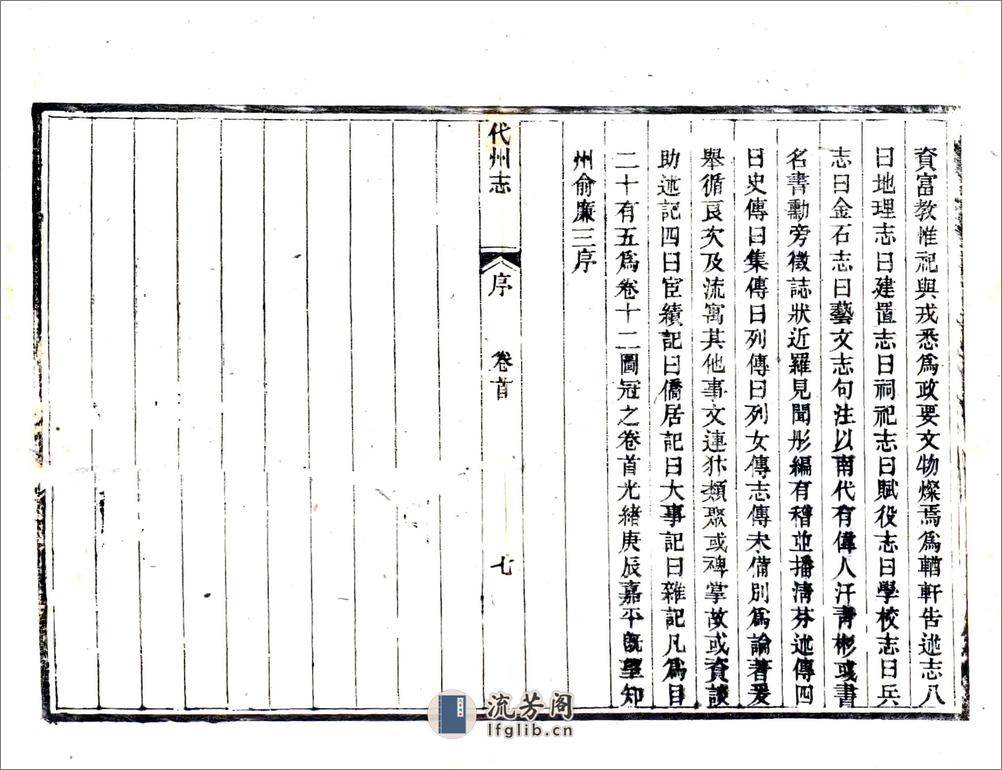 資富教惟祀與戎悉爲政要文物燦焉爲輶軒告述志八
曰地理志曰建置志曰祠祀志曰賦役志曰學校志曰兵
志曰金石志曰藝文志句注以南代有偉人汗青彬彧書
名書勳旁徵誌狀近羅見聞彤編有稽並播清芬述傳四
曰史傳曰集傳曰列傳曰列女傳志傳未備別爲論著爰
舉循良次及流寓其他事文連犿類聚或碑掌故或資談
助述記四曰宦績記曰僑居記曰大事記曰雜記凡爲目
二十有五爲卷十二圖冠之卷首光緒庚辰嘉平既望知
州俞廉三序
代州志
序
卷首
七
流芳阁
lfglib.cn